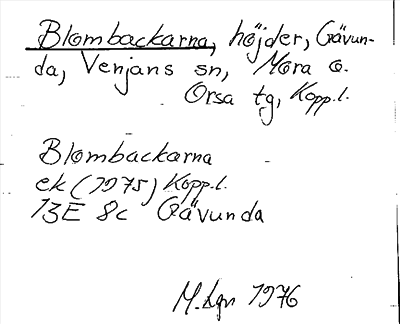 Blombackarna, höjder, Gävun-
da, Venjans sn, Mora o.
Orsa tg, Kopp.l.
Blombackarna
ek (1975) Kopp.l.
13E 8c Gävunda
M. Lgn 1976